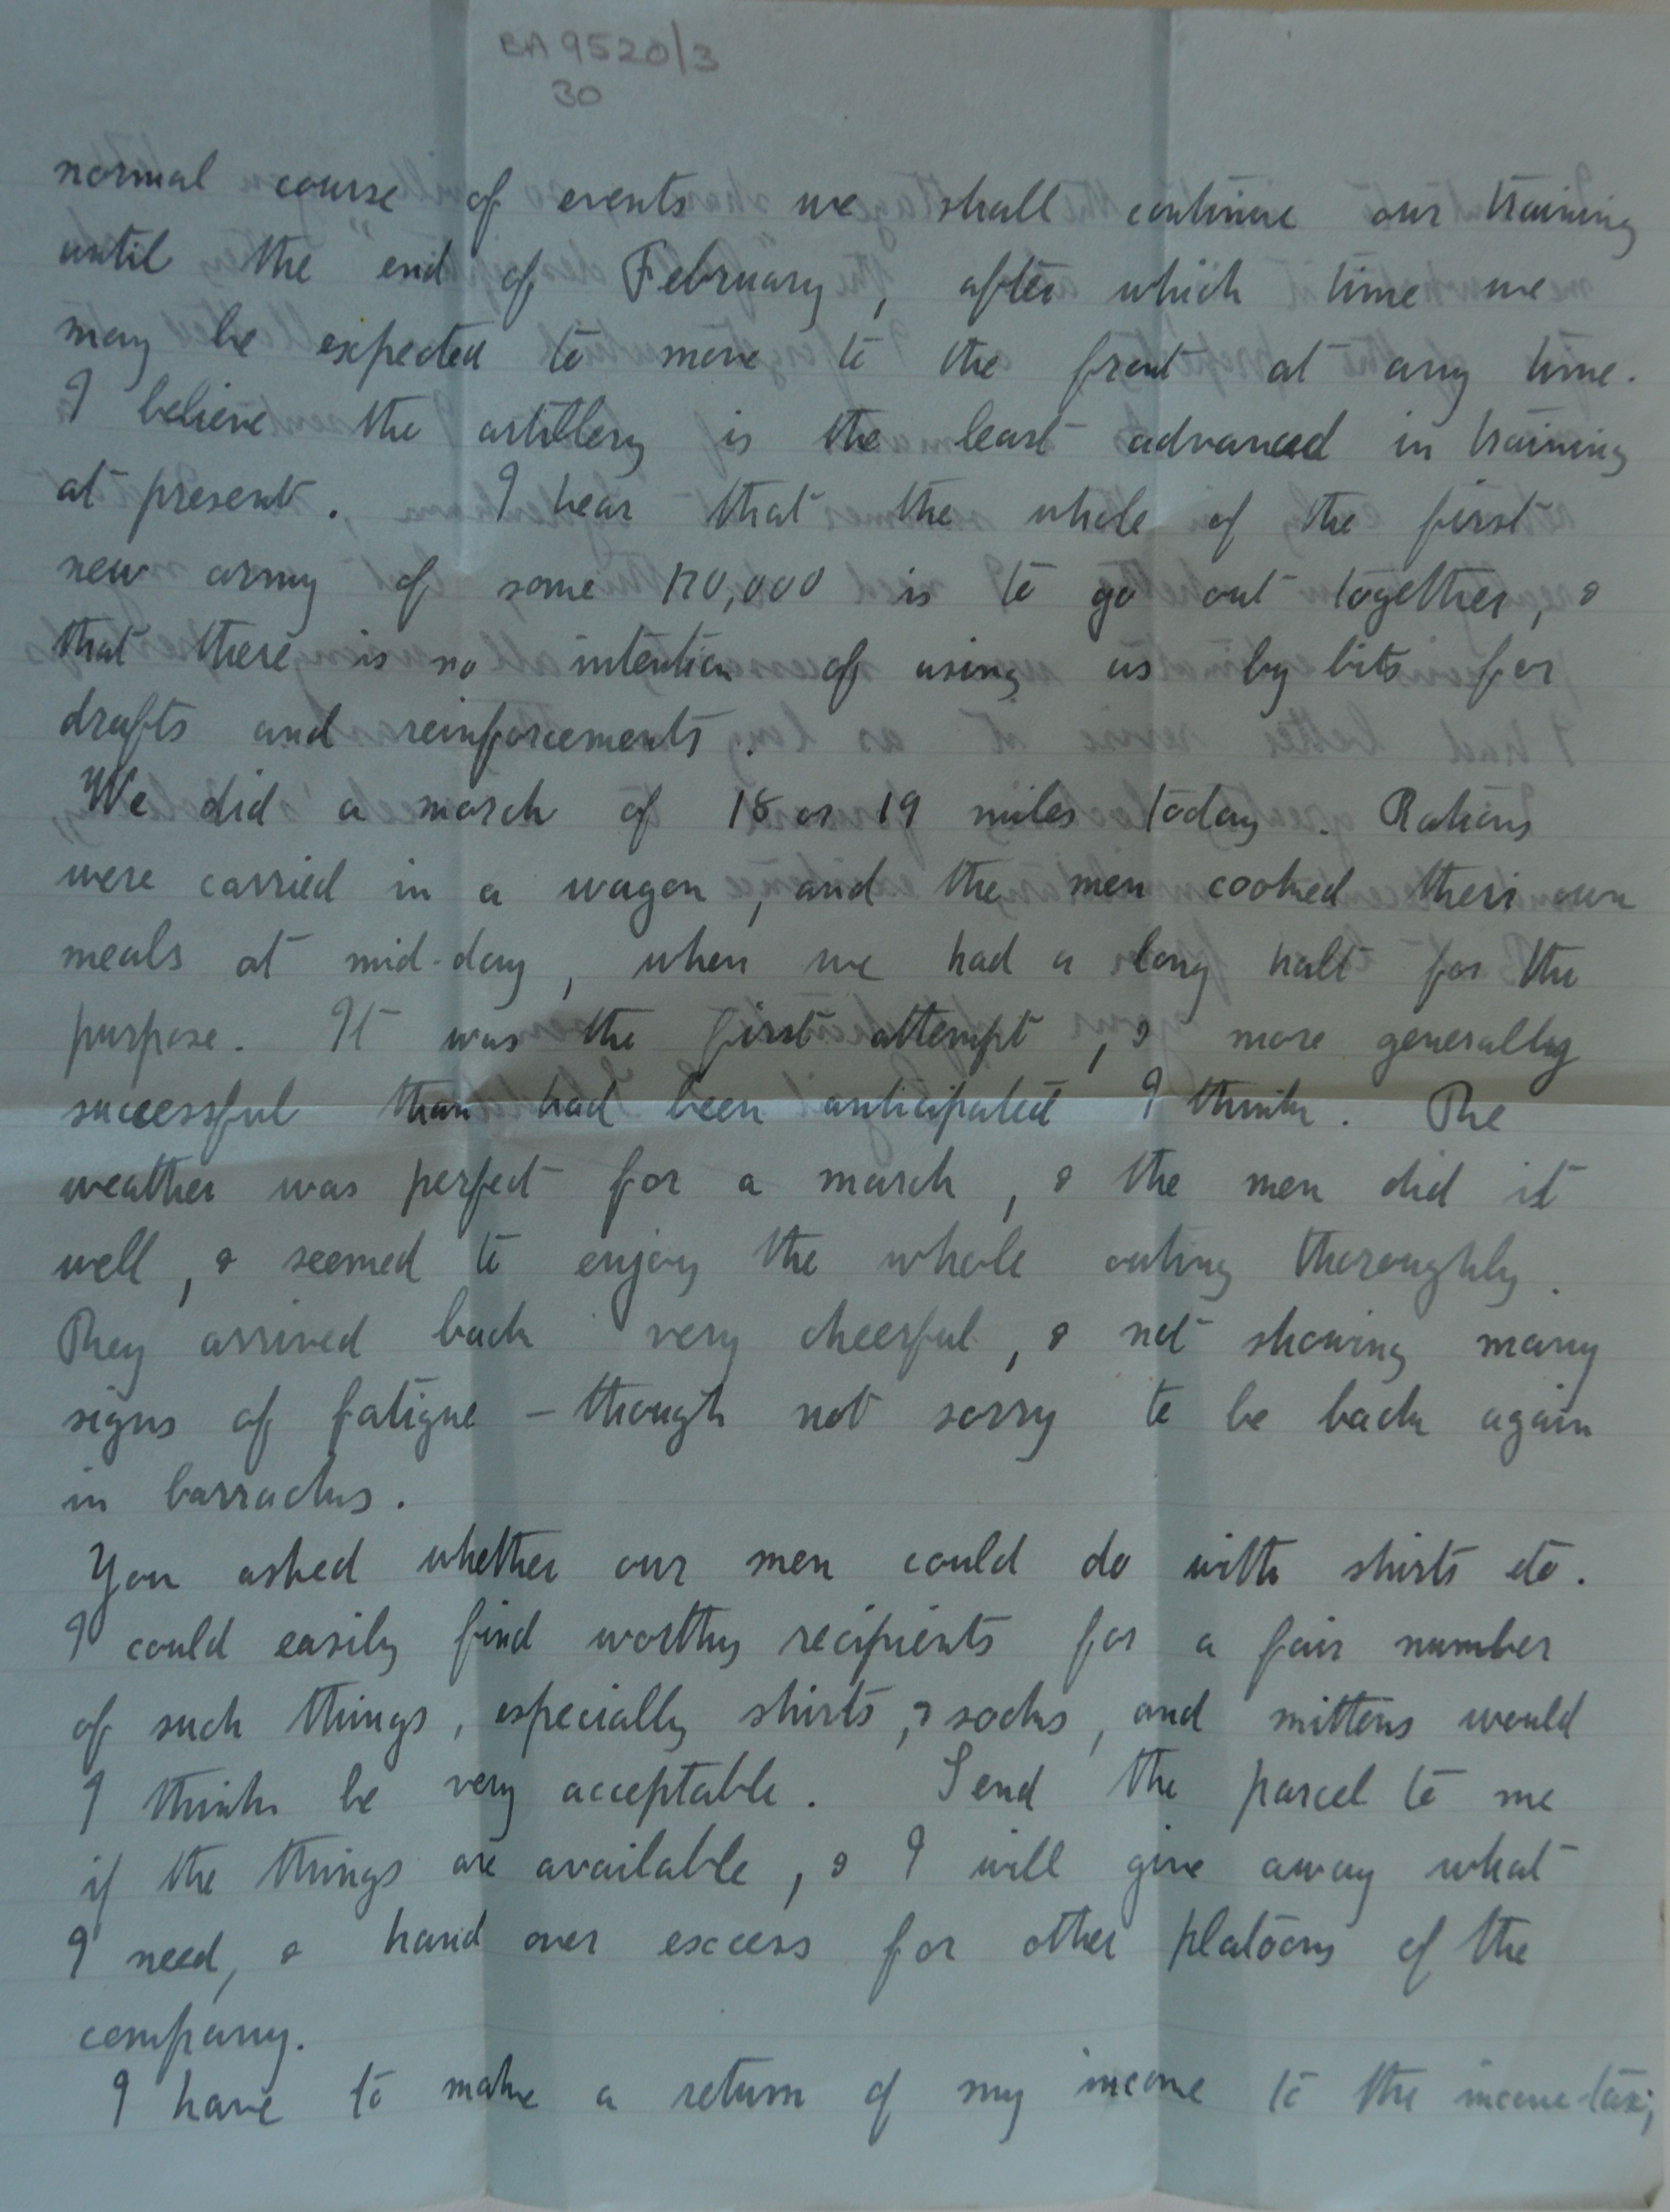 BA 9520/3
30
normal course of events we shall continue our training
until the end of February, after which time we
may be expected to move to the front at any time.
I believe the artillery is the least advanced in training
at present. I hear that the whole of the first
new army of some 120,000 is to go out together, &
that there is no intention of using us by bits for
drafts and reinforcements.
We did a march of 18 or 19 miles today. Rations
were carried in a wagon, and the men cooked their own
meals at mid-day, when we had a long halt for the
purpose. It was the first attempt, & more generally
successful than had been anticipated I think. The
weather was perfect for a march, & the men did it
well, & seemed to enjoy the whole outing thoroughly.
They arrived back very cheerful, & not showing many
signs of fatigue – though not sorry to be back again
in barracks.
You asked whether our men could do with shirts etc.
I could easily find worthy recipients for a fair number
of such things, especially shirts, & socks, and mittens would
I think be very acceptable. Send the parcel to me
if the things are available, & I will give away what
I need, & hand over excess for other platoons of the
company.
I have to make a return of my income to the income-tax;